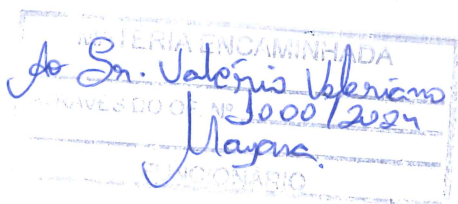 MATÉRIA ENCAMINHADA
Ao Sr. Valério Valeriano
ATRAVÉS DO OF. Nº 1000/2024
Mayara
FUNCIONÁRIO